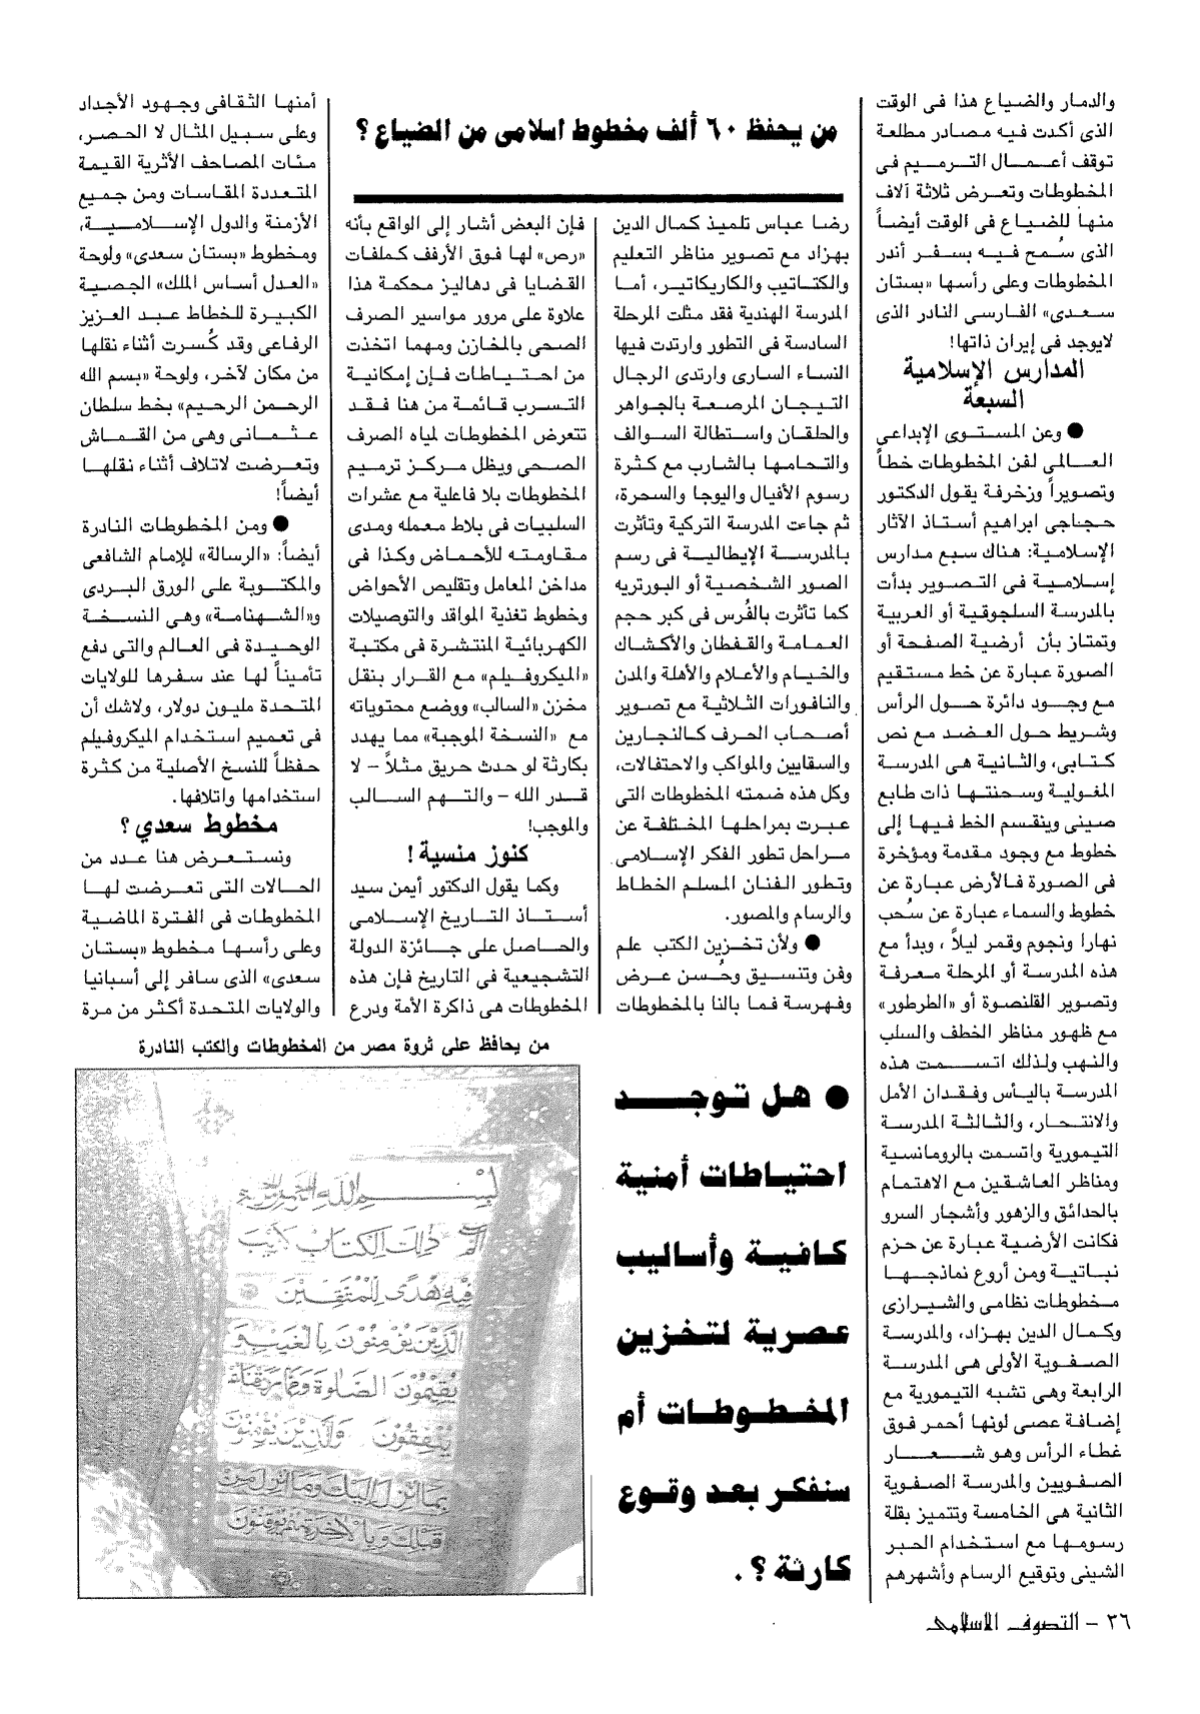 والدمار والضياع هذا فى الوقت
الذى أكدت فيه مصادر مطلعة
توقف أعمال الترميم فى
المخطوطات وتعرض ثلاثة آلاف
منها للضياع فى الوقت أيضاً
الذى سُمح فيه بسفر أندر
المخطوطات وعلى رأسها «بستان
سعدى» الفارسى النادر الذى
لايوجد فى إيران ذاتها!
المدارس الإسلامية
السبعة
● وعن المستوى الإبداعى
العالمى لفن المخطوطات خطاً
وتصويراً وزخرفة يقول الدكتور
حجاجى ابراهيم أستاذ الآثار
الإسلامية: هناك سبع مدارس
إسلامية فى التصوير بدأت
بالمدرسة السلجوقية أو العربية
وتمتاز بأن أرضية الصفحة أو
الصورة عبارة عن خط مستقيم
مع وجود دائرة حول الرأس
وشريط حول العضد مع نص
كتابى، والثانية هى المدرسة
المغولية وسحنتها ذات طابع
صينى وينقسم الخط فيها إلى
خطوط مع وجود مقدمة ومؤخرة
فى الصورة فالأرض عبارة عن
خطوط والسماء عبارة عن سُحب
نهارا ونجوم وقمر ليلاً ، وبدأ مع
هذه المدرسة أو المرحلة معرفة
وتصوير القلنصوة أو «الطرطور»
مع ظهور مناظر الخطف والسلب
والنهب ولذلك اتسمت هذه
المدرسة باليأس وفقدان الأمل
والانتحار، والثالثة المدرسة
التيمورية واتسمت بالرومانسية
ومناظر العاشقين مع الاهتمام
بالحدائق والزهور وأشجار السرو
فكانت الأرضية عبارة عن حزم
نباتية ومن أروع نماذجها
مخطوطات نظامى والشيرازى
وكمال الدين بهزاد، والمدرسة
الصفوية الأولى هى المدرسة
الرابعة وهى تشبه التيمورية مع
إضافة عصى لونها أحمر فوق
غطاء الرأس وهو شعار
الصفويين والمدرسة الصفوية
الثانية هى الخامسة وتتميز بقلة
رسومها مع استخدام الحبر
الشينى وتوقيع الرسام وأشهرهم
من يحفظ ٦٠ ألف مخطوط اسلامى من الضياع ؟
رضا عباس تلميذ كمال الدين
بهزاد مع تصوير مناظر التعليم
والكتاتيب والكاريكاتير، أما
المدرسة الهندية فقد مثلت المرحلة
السادسة فى التطور وارتدت فيها
النساء السارى وارتدى الرجال
التيجان المرصعة بالجواهر
والحلقان واستطالة السوالف
والتحامها بالشارب مع كثرة
رسوم الأفيال واليوجا والسحرة،
ثم جاءت المدرسة التركية وتأثرت
بالمدرسة الإيطالية فى رسم
الصور الشخصية أو البورتريه
كما تأثرت بالفُرس فى كبر حجم
العمامة والقفطان والأكشاك
والخيام والأعلام والأهلة والمدن
والنافورات الثلاثية مع تصوير
أصحاب الحرف كالنجارين
والسقايين والمواكب والاحتفالات،
وكل هذه ضمته المخطوطات التى
عبرت بمراحلها المختلفة عن
مراحل تطور الفكر الإسلامى
وتطور الفنان المسلم الخطاط
والرسام والمصور.
● ولأن تخزين الكتب علم
وفن وتنسيق وحُسن عرض
وفهرسة فما بالنا بالمخطوطات
فإن البعض أشار إلى الواقع بأنه
«رص» لها فوق الأرفف كملفات
القضايا فى دهاليز محكمة هذا
علاوة على مرور مواسير الصرف
الصحى بالمخازن ومهما اتخذت
من احتياطات فإن إمكانية
التسرب قائمة من هنا فقد
تتعرض المخطوطات لمياه الصرف
الصحى ويظل مركز ترميم
المخطوطات بلا فاعلية مع عشرات
السلبيات فى بلاط معمله ومدى
مقاومته للأحماض وكذا فى
مداخن المعامل وتقليص الأحواض
وخطوط تغذية المواقد والتوصيلات
الكهربائية المنتشرة فى مكتبة
«الميكروفيلم» مع القرار بنقل
مخزن «السالب» ووضع محتوياته
مع «النسخة الموجبة» مما يهدد
بكارثة لو حدث حريق مثلاً – لا
قدر الله – والتهم السالب
والموجب!
كنوز منسية !
وكما يقول الدكتور أيمن سيد
أستاذ التاريخ الإسلامى
والحاصل على جائزة الدولة
التشجيعية فى التاريخ فإن هذه
المخطوطات هى ذاكرة الأمة ودرع
أمنها الثقافى وجهود الأجداد
وعلى سبيل المثال لا الحصر،
مئات المصاحف الأثرية القيمة
المتعددة المقاسات ومن جميع
الأزمنة والدول الإسلامية،
ومخطوط «بستان سعدى» ولوحة
«العدل أساس الملك» الجصية
الكبيرة للخطاط عبد العزيز
الرفاعى وقد كُسرت أثناء نقلها
من مكان لآخر، ولوحة «بسم الله
الرحمن الرحيم» بخط سلطان
عثمانى وهى من القماش
وتعرضت لاتلاف أثناء نقلها
أيضاً!
● ومن المخطوطات النادرة
أيضاً: «الرسالة» للإمام الشافعى
والمكتوبة على الورق البردى
و«الشهنامة» وهى النسخة
الوحيدة فى العالم والتى دفع
تأميناً لها عند سفرها للولايات
المتحدة مليون دولار، ولاشك أن
فى تعميم استخدام الميكروفيلم
حفظاً للنسخ الأصلية من كثرة
استخدامها واتلافها.
مخطوط سعدي ؟
ونستعرض هنا عدد من
الحالات التى تعرضت لها
المخطوطات فى الفترة الماضية
وعلى رأسها مخطوط «بستان
سعدى» الذى سافر إلى أسبانيا
والولايات المتحدة أكثر من مرة
من يحافظ على ثروة مصر من المخطوطات والكتب النادرة
بسم الله الرحمن الرحيم
الم ذلك الكتاب لا ريب
فيه هدى للمتقين
الذين يؤمنون بالغيب و
يقيمون الصلوة ومما رزقناهم
ينفقون والذين يؤمنون
بما انزل اليك وما انزل من
قبلك وبالاخرة هم يوقنون
● هل توجد
احتياطات أمنية
كافية وأساليب
عصرية لتخزين
المخطوطات أم
سنفكر بعد وقوع
كارثة ؟ .
٣٦ – التصوف الاسلامى